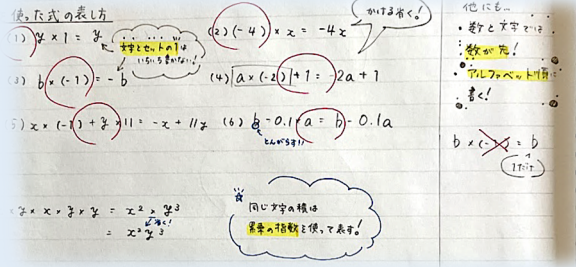 使った式の表し方
(1) y × 1 = y
文字とセットの1は
いちいち書かない!
(2) (-4) × x = -4x
かける省く!
(3) b × (-1) = -b
(4) a × (-2) + 1 = -2a + 1
5) x × (-1) + y × 11 = -x + 11y
(6) b - 0.1 × a = b - 0.1a
とんがらす!!
y × x × y × y = x² × y³
省く!
= x²y³
同じ文字の積は
累乗の指数を使って表す!
他にも…
・数と文字では
数が先!
・アルファベット順に
書く!
b × = b
1だけ